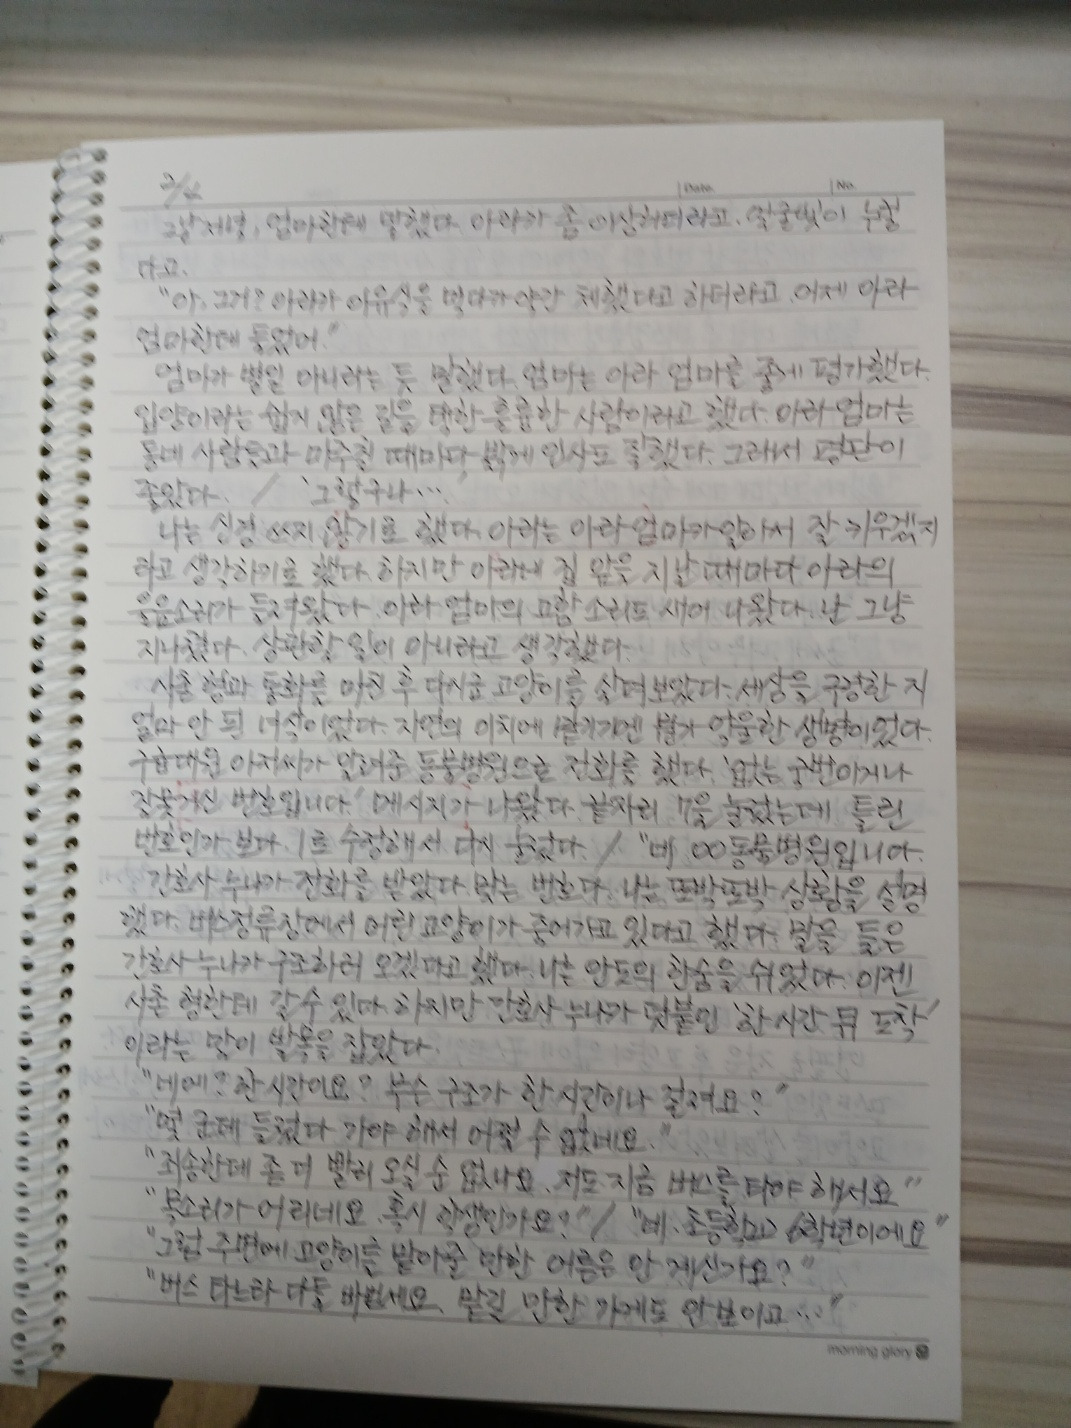 2/4
Date. No.
그날 저녁, 엄마한테 말했다. 아라가 좀 이상하더라고. 얼굴빛이 누렇
다고.
"아, 그거? 아라가 이유식을 먹다가 약간 체했다고 하더라고. 어제 아라
엄마한테 들었어."
엄마가 별일 아니라는 듯 말했다. 엄마는 아라 엄마를 좋게 평가했다.
입양이라는 쉽지 않은 길을 택한 훌륭한 사람이라고 했다. 아라 엄마는
동네 사람들과 마주칠 때마다 밝게 인사도 잘했다. 그래서 평판이
좋았다. / '그렇구나…'
나는 신경 쓰지 않기로 했다. 아라는 아라 엄마가 알아서 잘 키우겠지
라고 생각하기로 했다. 하지만 아라네 집 앞을 지날 때마다 아라의
울음소리가 들려왔다. 아라 엄마의 고함 소리도 새어 나왔다. 난 그냥
지나쳤다. 상관할 일이 아니라고 생각했다.
사촌 형과 통화를 마친 후 다시금 고양이를 살펴보았다. 세상을 구경한 지
얼마 안 된 녀석이었다. 자연의 이치에 맡기기엔 뭔가 억울한 생명이었다.
구급대원 아저씨가 알려준 동물병원으로 전화를 했다. '없는 국번이거나
잘못거신 번호입니다.' 메시지가 나왔다. 끝자리 7을 눌렀는데 틀린
번호인가 보다. 1로 수정해서 다시 눌렀다. / "네 OO동물병원입니다.
간호사 누나가 전화를 받았다. 맞는 번호다. 나는 또박또박 상황을 설명
했다. 버스정류장에서 어린 고양이가 죽어가고 있다고 했다. 말을 들은
간호사 누나가 구조하러 오겠다고 했다. 나는 안도의 한숨을 쉬었다. 이젠
사촌 형한테 갈 수 있다. 하지만 간호사 누나가 덧붙인 '한 시간 뒤 도착'
이라는 말이 발목을 잡았다.
"네에? 한 시간이요? 무슨 구조가 한 시간이나 걸려요?"
"몇 군데 들렀다 가야 해서 어쩔 수 없네요."
"죄송한데 좀 더 빨리 오실 순 없나요. 저도 지금 버스를 타야 해서요"
"목소리가 어리네요. 혹시 학생인가요?" / "네. 초등학교 6학년이에요"
"그럼 주변에 고양이를 맡아줄 만한 어른은 안 계신가요?"
"버스 타느라 다들 바쁘세요. 맡길 만한 가게도 안 보이고…"
morning glory